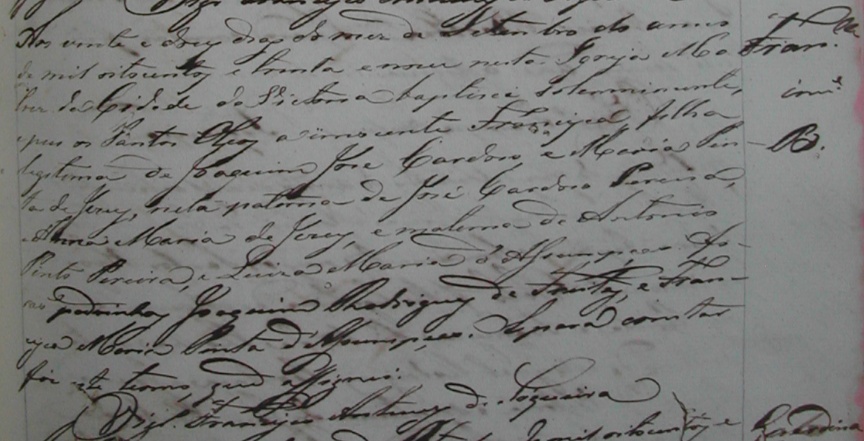 Aos vinte e dous dias do mez de Setembro do anno
de mil oitocentos e trinta e nove nesta Igreja Ma
triz da Cidade da Victoria baptisei solemnimente,
e pus os Santos Oleos a innocente Francisca filha
legitima de Joaquim José Cardoso, e Maria Pin-
ta de Jesus, neta paterna de José Cardoso Pereira,
e Anna Maria de Jesus, e materna de Antonio
Pinto Pereira, e Luiza Maria d'Assumpçao. Fo-
rao padrinhos Joaquim Rodrigues de Freitas, e Fran-
cisca Maria Pinta d'Assumpçao. E para constar
fiz este termo, que assignei.
Vigr. Francisco Antunes de Sequeira
mil oitocentos e
Fran.
inn.e
B.